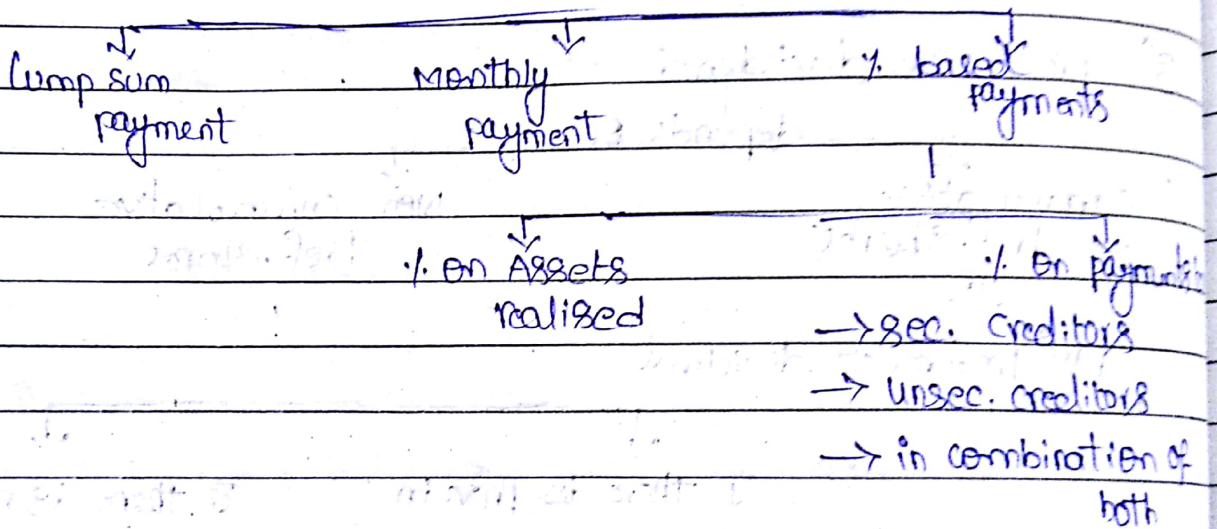 Lump sum
payment
Monthly
payment
% based
payments
% on Assets
realised
% on payments
→ sec. creditors
→ unsec. creditors
→ in combination of
both